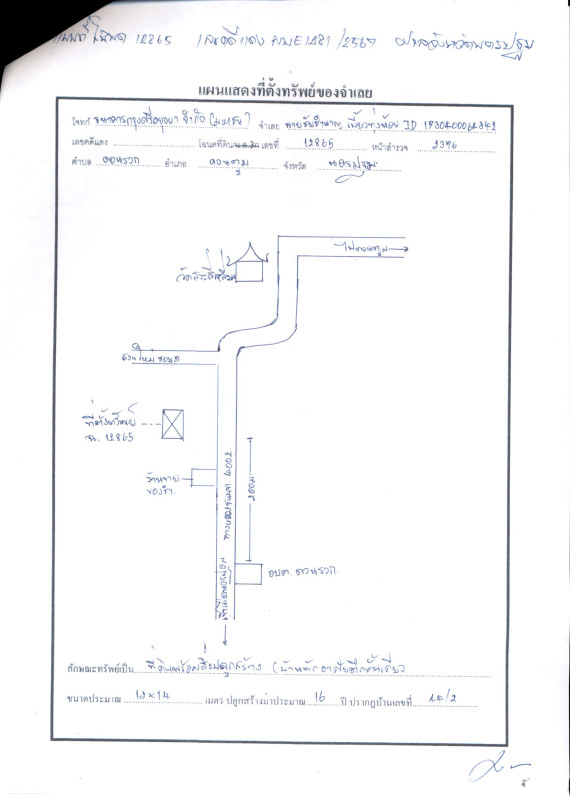 แผนที่ โฉนด 12865 เลขคดีแดง ผบE1481/2567 ศาลจังหวัดนครปฐม
แผนแสดงที่ตั้งทรัพย์ของจำเลย
โจทก์ ธนาคารกรุงศรีอยุธยา จำกัด (มหาชน) จำเลย นายชัยชำนาญ ID
เลขคดีแดง โฉนดที่ดิน น.ส.3ก เลขที่ 12865 หน้าสำรวจ 2396
ตำบล ดอนรวก อำเภอ ดอนตูม จังหวัด นครปฐม
ไปดอนตูม
วัดสระสี่เหลี่ยม
ซอย 5
ที่ตั้งทรัพย์
ฉ. 12865
ร้านขาย
ของชำ
ทางหลวงชนบท 4002
200ม
อบต. ดอนรวก
ลักษณะทรัพย์เป็น ที่ดินพร้อมสิ่งปลูกสร้าง (บ้านพักอาศัยตึกชั้นเดียว
ขนาดประมาณ 12x14 เมตร ปลูกสร้างมาประมาณ 16 ปี ปรากฏบ้านเลขที่